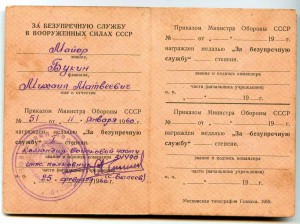 ЗА БЕЗУПРЕЧНУЮ СЛУЖБУ
В ВООРУЖЕННЫХ СИЛАХ СССР
Майор
звание,
Букин
фамилия,
Михаил Матвеевич
имя и отчество
Приказом Министра Обороны СССР
№ 51 от „ 11 " января 1960 г.
награжден медалью „За безупречную
службу" степени.
Командир войсковой части
„25 " 1960 г.
Приказом Министра Обороны СССР
№ от „ " 19 г.
награжден медалью „За безупречную
службу" степени.
звание и подпись командира
части (начальника учреждения)
М. П. „ " 19 г.
Приказом Министра Обороны СССР
№ от „ " 19 г.
награжден медалью „За безупречную
службу" степени.
звание и подпись командира
части (начальника учреждения)
М. П. „ " 19 г.
Московская типография Гознака. 1959.